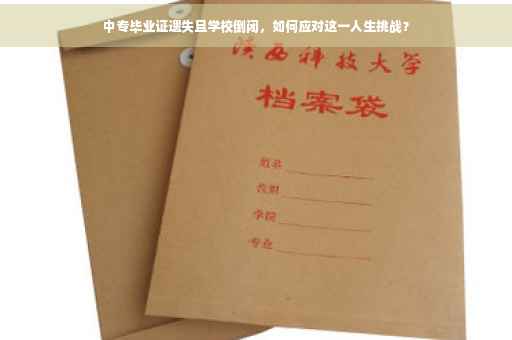 中专毕业证遗失且学校倒闭，如何应对这一人生挑战？
陕西科技大学
档案袋
姓名
学院
专业